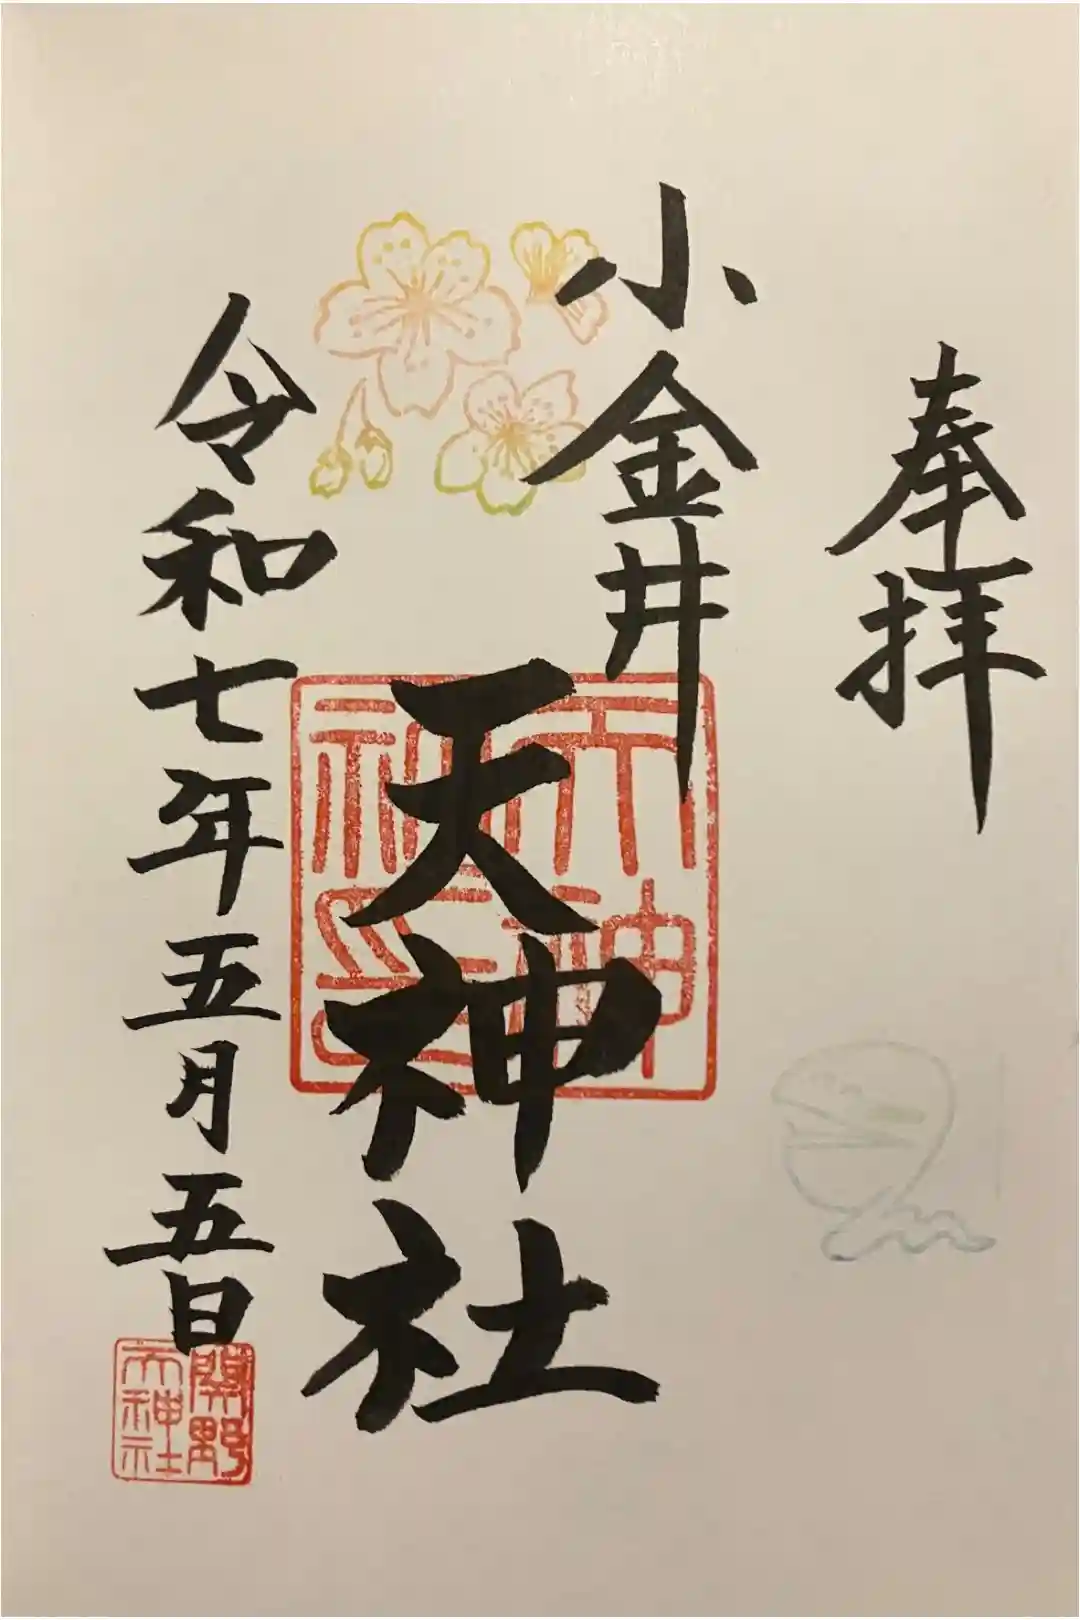 奉拝
小金井
天神社
令和七年五月五日
天神社印
関野天神社